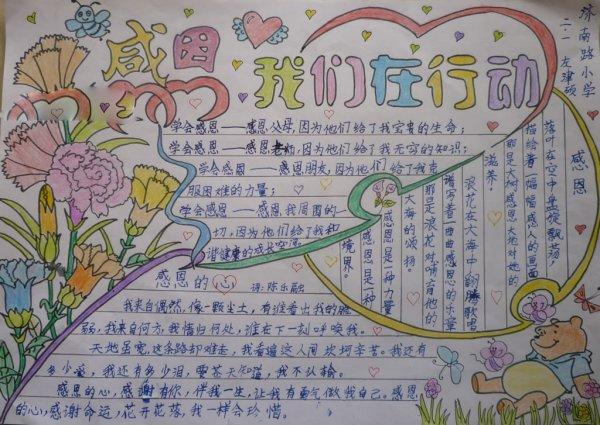 感恩
我们在行动
济南路小学
二.1 左津硕
学会感恩——感恩父母,因为他们给了我宝贵的生命;
学会感恩——感恩老师,因为他们给了我无穷的知识;
学会感恩——感恩朋友,因为他们给了我克
服困难的力量;
学会感恩——感恩我周围的一
切,因为他们给了我和
谐健康的成长空间
感恩
落叶在空中盘旋飘荡,
描绘着一幅幅感人的画面
那是大树感恩大地对她的
滋养;
浪花在大海中翻腾歌唱
谱写着一曲曲感恩的乐章
那是浪花对哺育他的
大海的颂扬。
感恩是一种力量
感恩是一种
境界。
感恩的心
词:陈乐融
我来自偶然,像一颗尘土,有谁看出我的脆
弱,我来自何方,我情归何处,谁在下一刻呼唤我。
天地虽宽,这条路却难走,我看遍这人间坎坷辛苦。我还有
多少爱,我还有多少泪,要苍天知道,我不认输。
感恩的心,感谢有你,伴我一生,让我有勇气做我自己。感恩
的心,感谢命运,花开花落,我一样会珍惜。